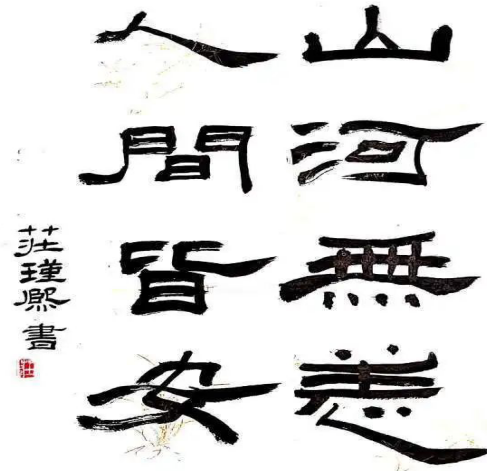 山河無恙
人間皆安
莊瑾熙書